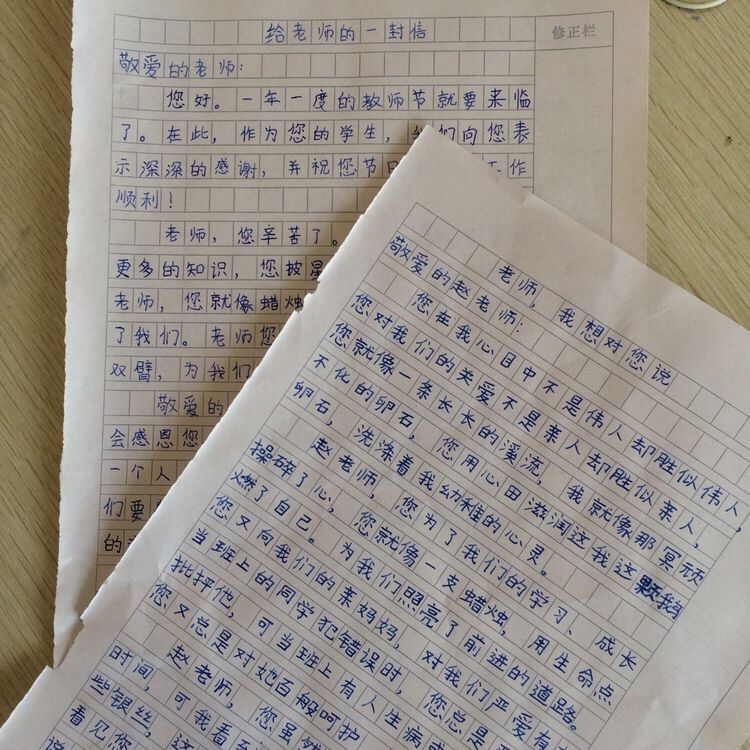 给老师的一封信
修正栏
敬爱的老师:
您好。一年一度的教师节就要来临
了。在此,作为您的学生,我们向您表
示深深的感谢,并祝您节日 工作
顺利!
老师,您辛苦了。
更多的知识,您披星
老师,您就像蜡烛
了我们。老师您
双臂,为我们
敬爱的
会感恩您
一个人
们要
的
老师,我想对您说
敬爱的赵老师:
您在我心目中不是伟人却胜似伟人,
您对我们的关爱不是亲人却胜似亲人,
您就像一条长长的溪流,我就像那冥顽
不化的卵石,您用心田滋润这我这颗鹅
卵石,洗涤着我幼稚的心灵。
赵老师,您为了我们的学习、成长
操碎了心,您就像一支蜡烛,用生命点
燃了自己。为我们照亮了前进的道路。
您又向我们的亲妈妈,对我们严爱有
当班上的同学犯错误时,您总是
批评他,可当班上有人生病
您又总是对她百般呵护
赵老师,您虽然
时间,可我看
些银丝,这
看见您
说